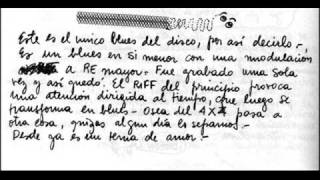 Este es el unico blues del disco, por así decirlo.-,
Es un blues en SI menor con una modulación
a RE mayor.- Fue grabado una sola
vez y así quedó. El RIFF del principio provoca
una atención dirigida al tiempo, que luego se
transforma en blues.- Osea del 4X4 pasa a
otra cosa, quizas algun día lo sepamos.-
Desde ya es un tema de amor.-